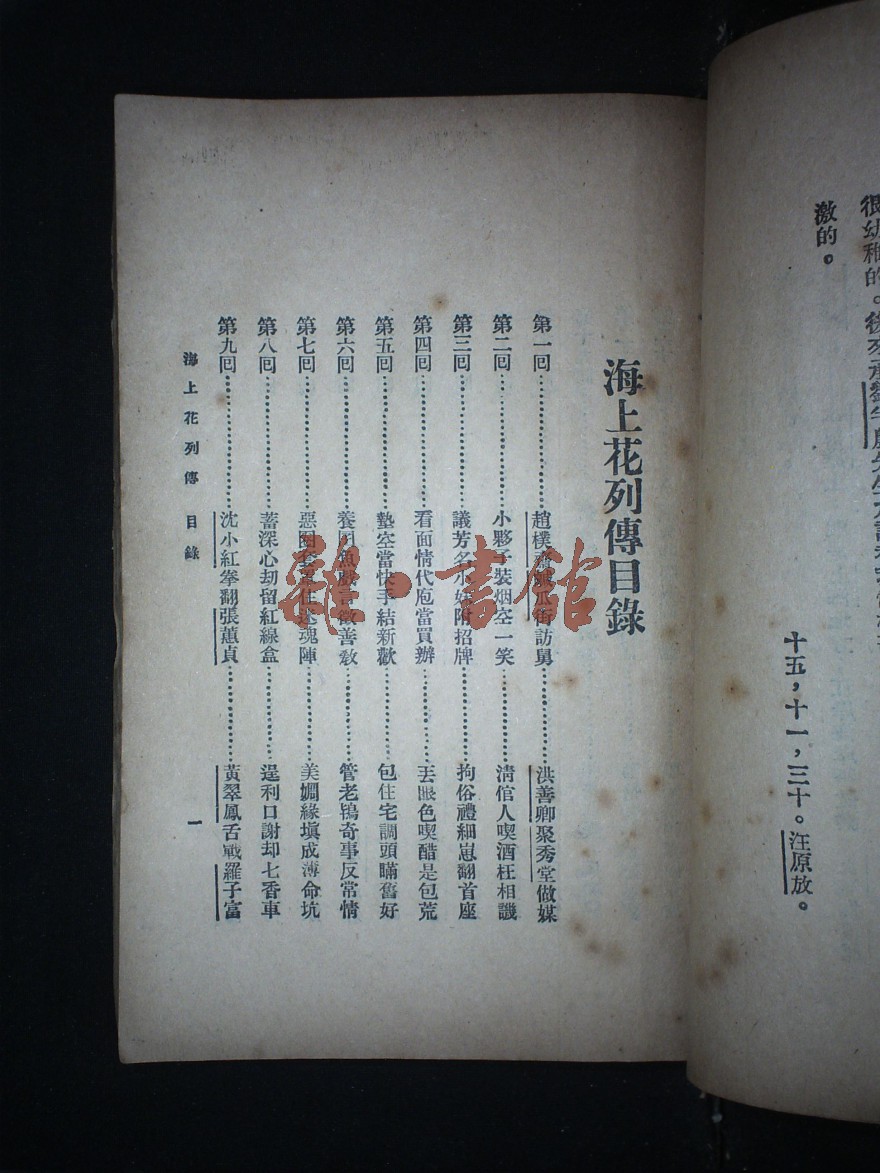 很幼稚的。後來承劉半農先生
激的。
十五，十一，三十。汪原放。
海上花列傳目錄
第一回……趙樸齋鹹瓜街訪舅……洪善卿聚秀堂做媒
第二回……小夥子裝烟空一笑……清倌人喫酒枉相譏
第三回……議芳名小妹附招牌……拘俗禮細崽翻首座
第四回……看面情代庖當買辦……丟眼色喫醋是包荒
第五回……墊空當快手結新歡……包住宅調頭瞞舊好
第六回……養囡魚戲言徵善教……管老鴇奇事反常情
第七回……惡圈套罩住迷魂陣……美姻緣塡成薄命坑
第八回……蓄深心劫留紅線盒……逞利口謝却七香車
第九回……沈小紅拳翻張蕙貞……黃翠鳳舌戰羅子富
海上花列傳 目錄 一
雜·書館